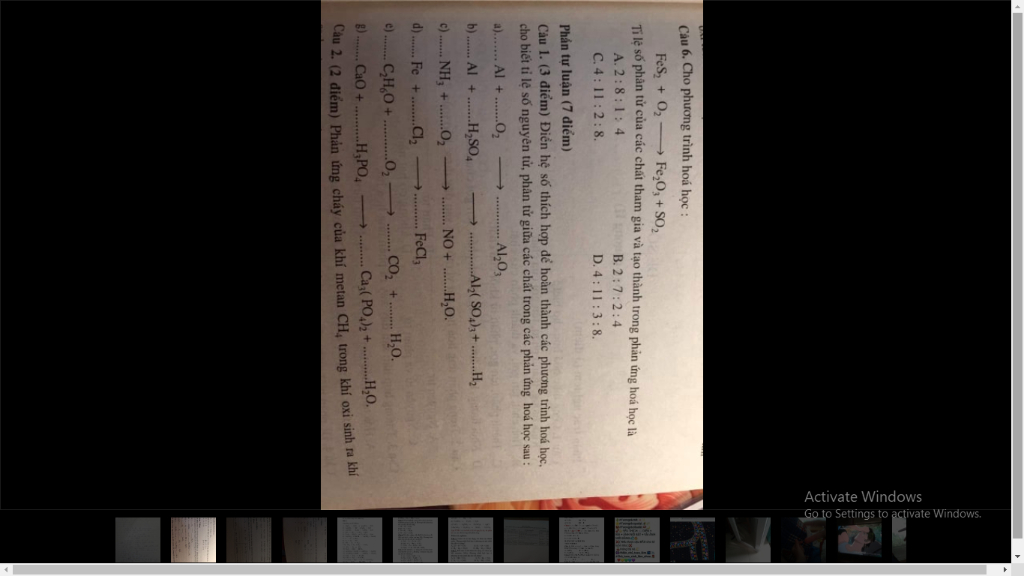 Câu 6. Cho phương trình hoá học :
FeS₂ + O₂ ⟶ Fe₂O₃ + SO₂
Tỉ lệ số phân tử của các chất tham gia và tạo thành trong phản ứng hoá học là
A. 2 : 8 : 1 : 4 B. 2 : 7 : 2 : 4
C. 4 : 11 : 2 : 8. D. 4 : 11 : 3 : 8.
Phần tự luận (7 điểm)
Câu 1. (3 điểm) Điền hệ số thích hợp để hoàn thành các phương trình hoá học,
cho biết tỉ lệ số nguyên tử, phân tử giữa các chất trong các phản ứng hoá học sau :
a) ....... Al + .......O₂ ⟶ ............ Al₂O₃
b) ...... Al + .......H₂SO₄ ⟶ ............Al₂( SO₄)₃ + ........H₂
c) ....... NH₃ + ........O₂ ⟶ ........ NO + .......H₂O.
d) ...... Fe + .........Cl₂ ⟶ .......... FeCl₃
e) ........ C₂H₆O + ............O₂ ⟶ ........ CO₂ + ........ H₂O.
g) ........ CaO + ...........H₃PO₄ ⟶ ......... Ca₃( PO₄)₂ + ..........H₂O.
Câu 2. (2 điểm) Phản ứng cháy của khí metan CH₄ trong khí oxi sinh ra khí
Activate Windows
Go to Settings to activate Windows.